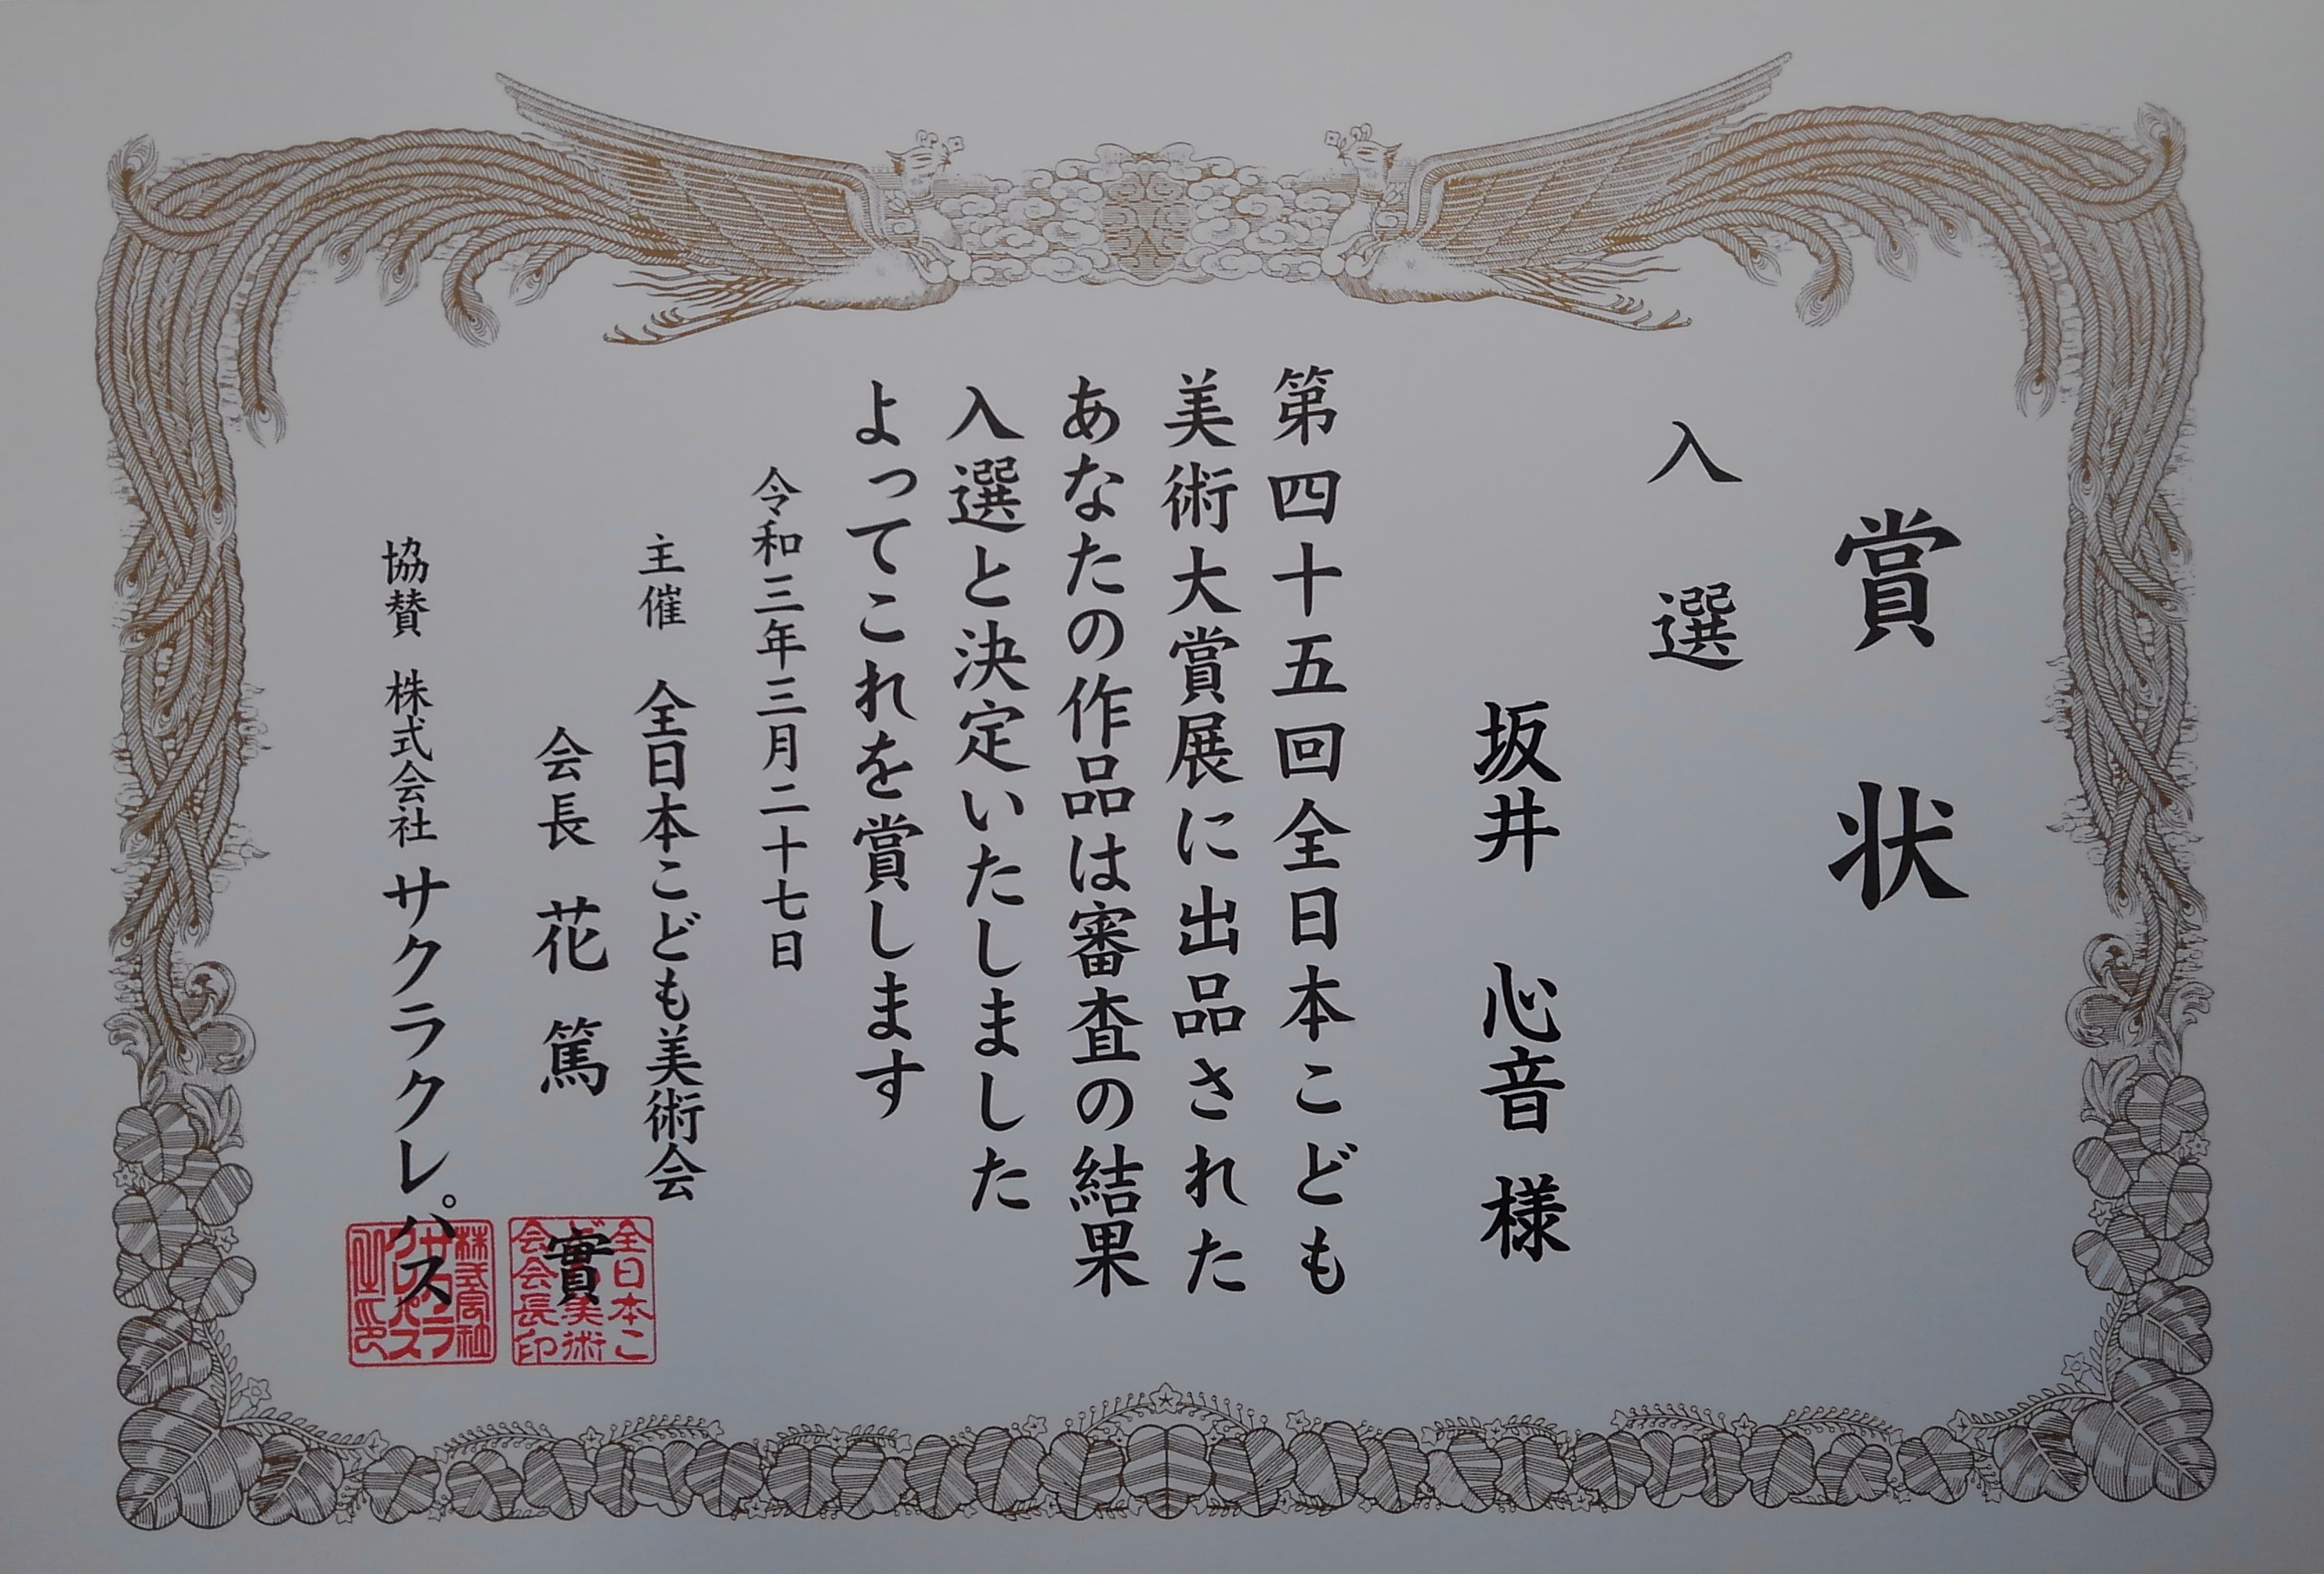 賞状
入選
坂井 心音 様
第四十五回全日本こども
美術大賞展に出品された
あなたの作品は審査の結果
入選と決定いたしました
よってこれを賞します
令和三年三月二十七日
主催 全日本こども美術会
会長 花篤 實
協賛 株式会社サクラクレパス
全日本こ
ども美術
会会長印
株式会社
サクラ
クレパス
之印